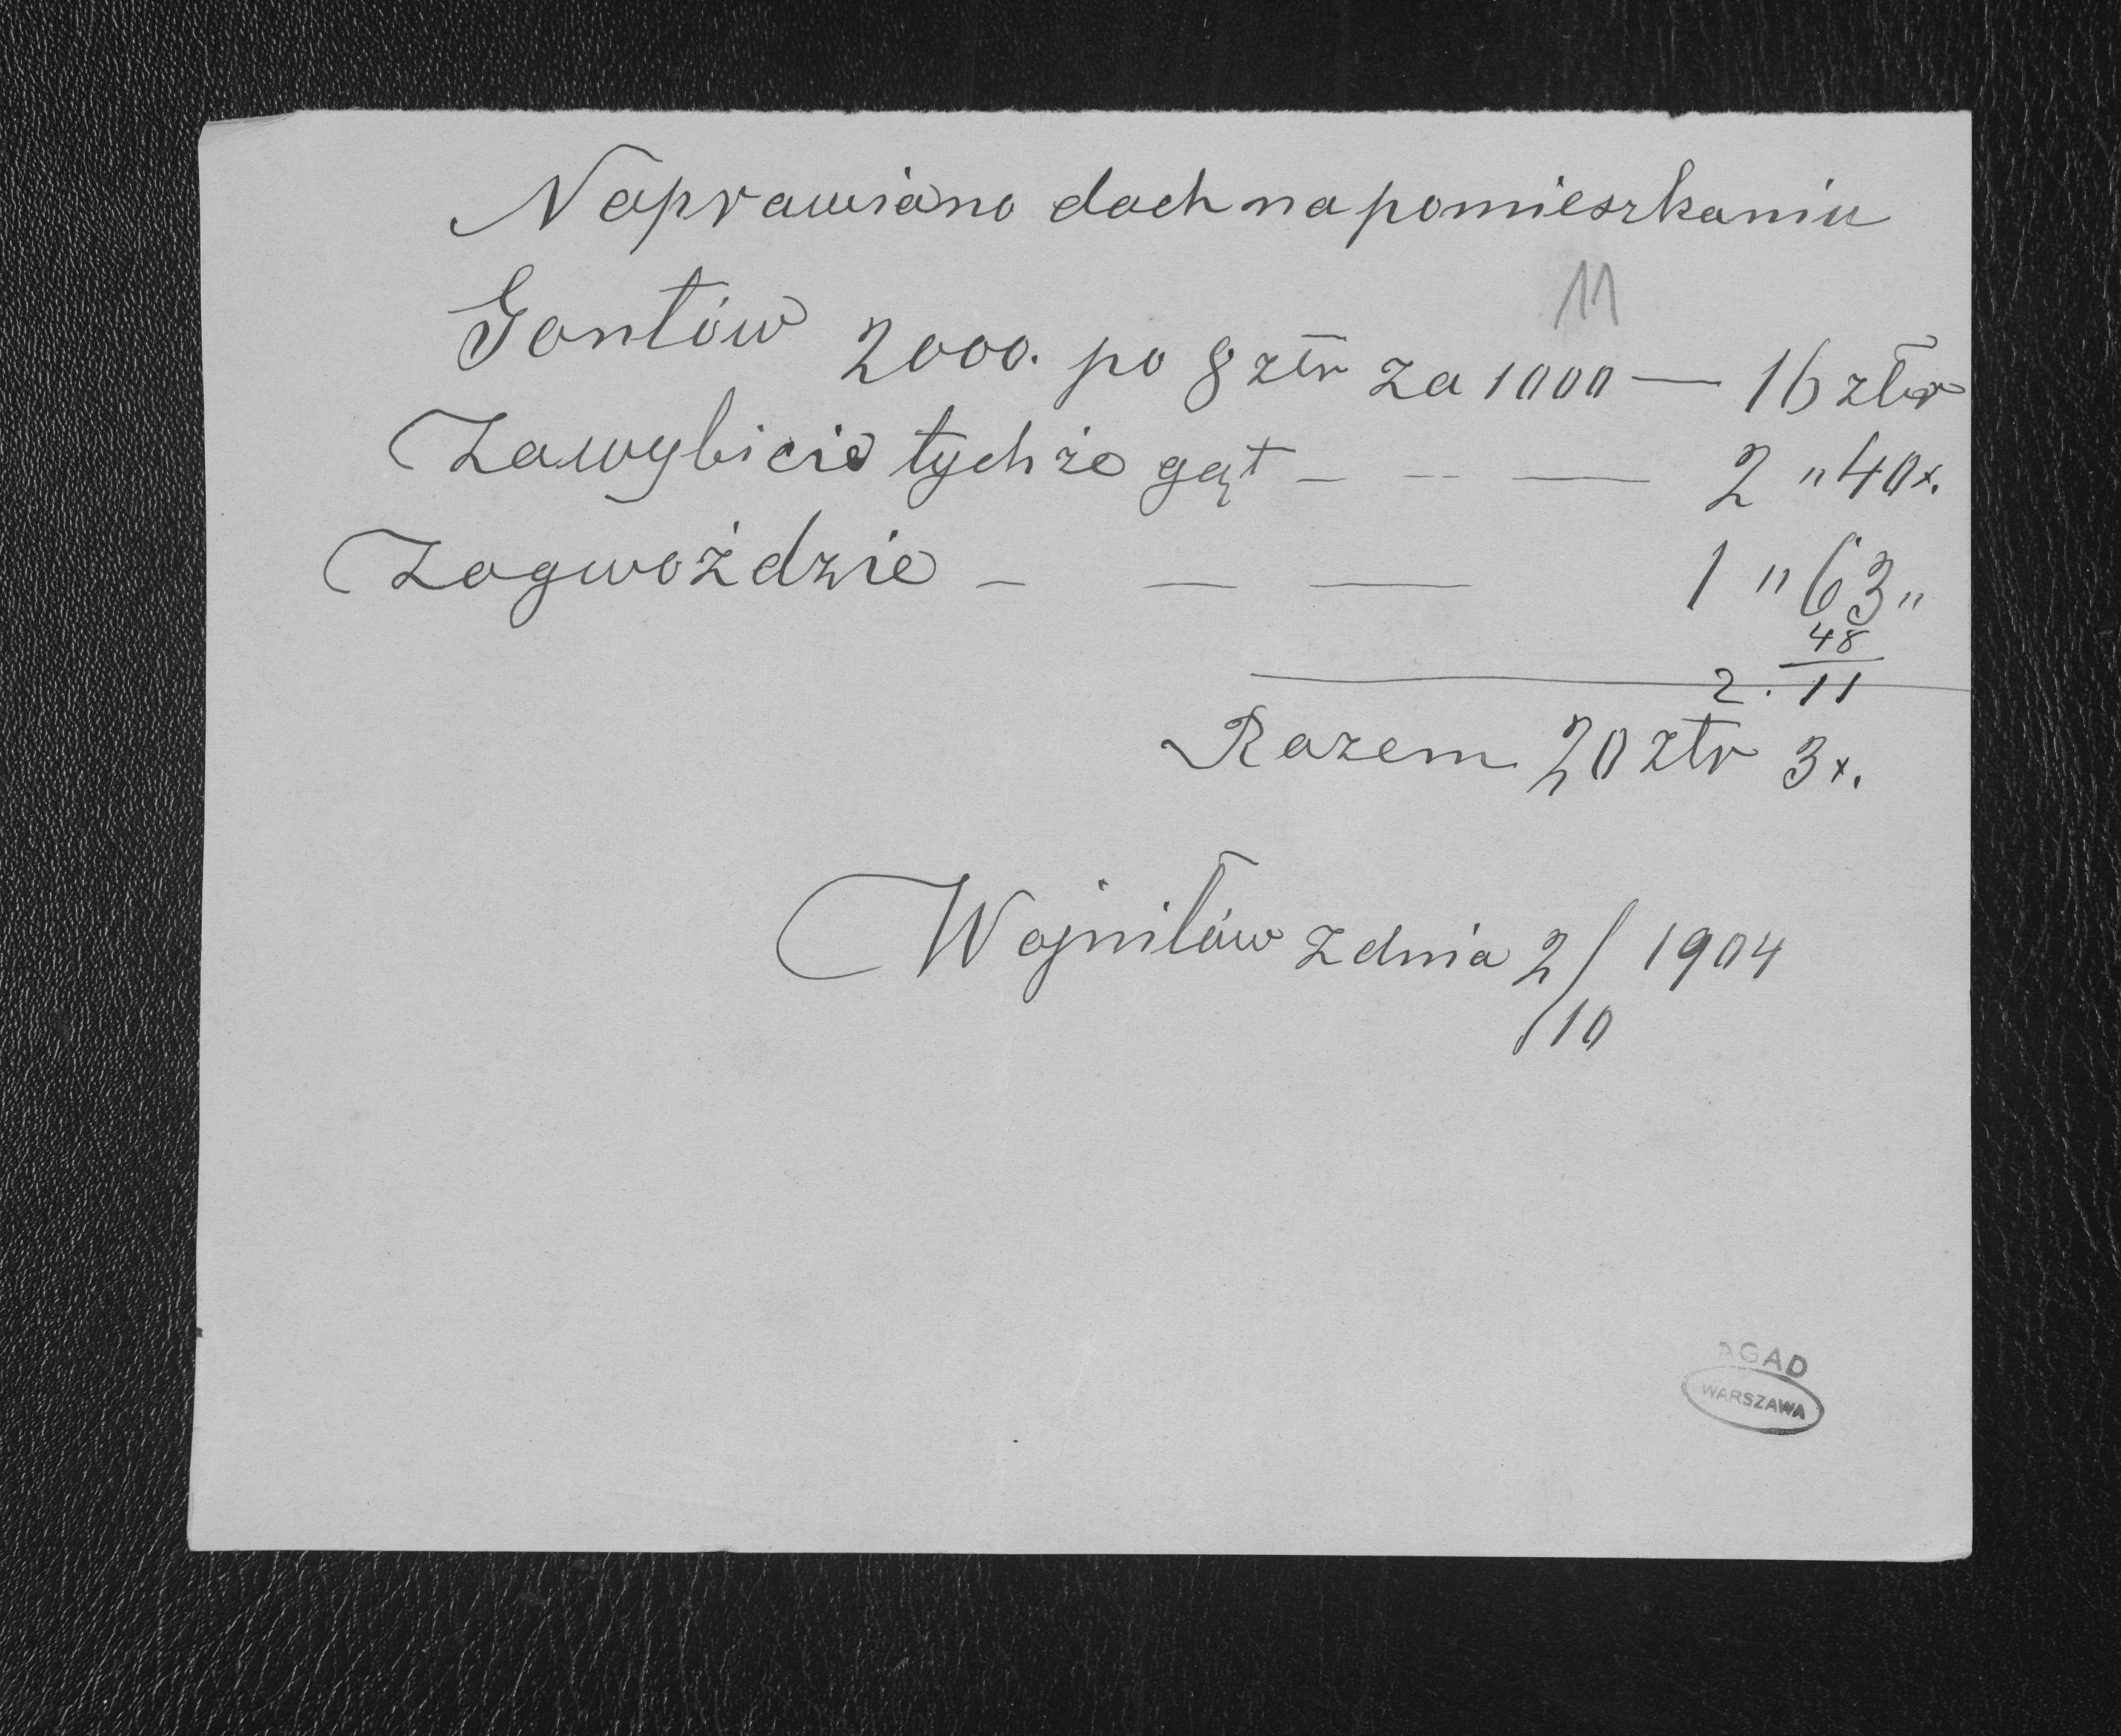 Naprawiano dach na pomieszkaniu
11
Gontów 2000. po 8 złr za 1000 — 16 złr
Za wybicie tychże gąt — — — 2 " 40 x.
Za gwoździe — — — 1 " 63 "
48
2. 11
Razem 20 złr 3 x.
Wojniłów z dnia 2/10 1904
AGAD
WARSZAWA